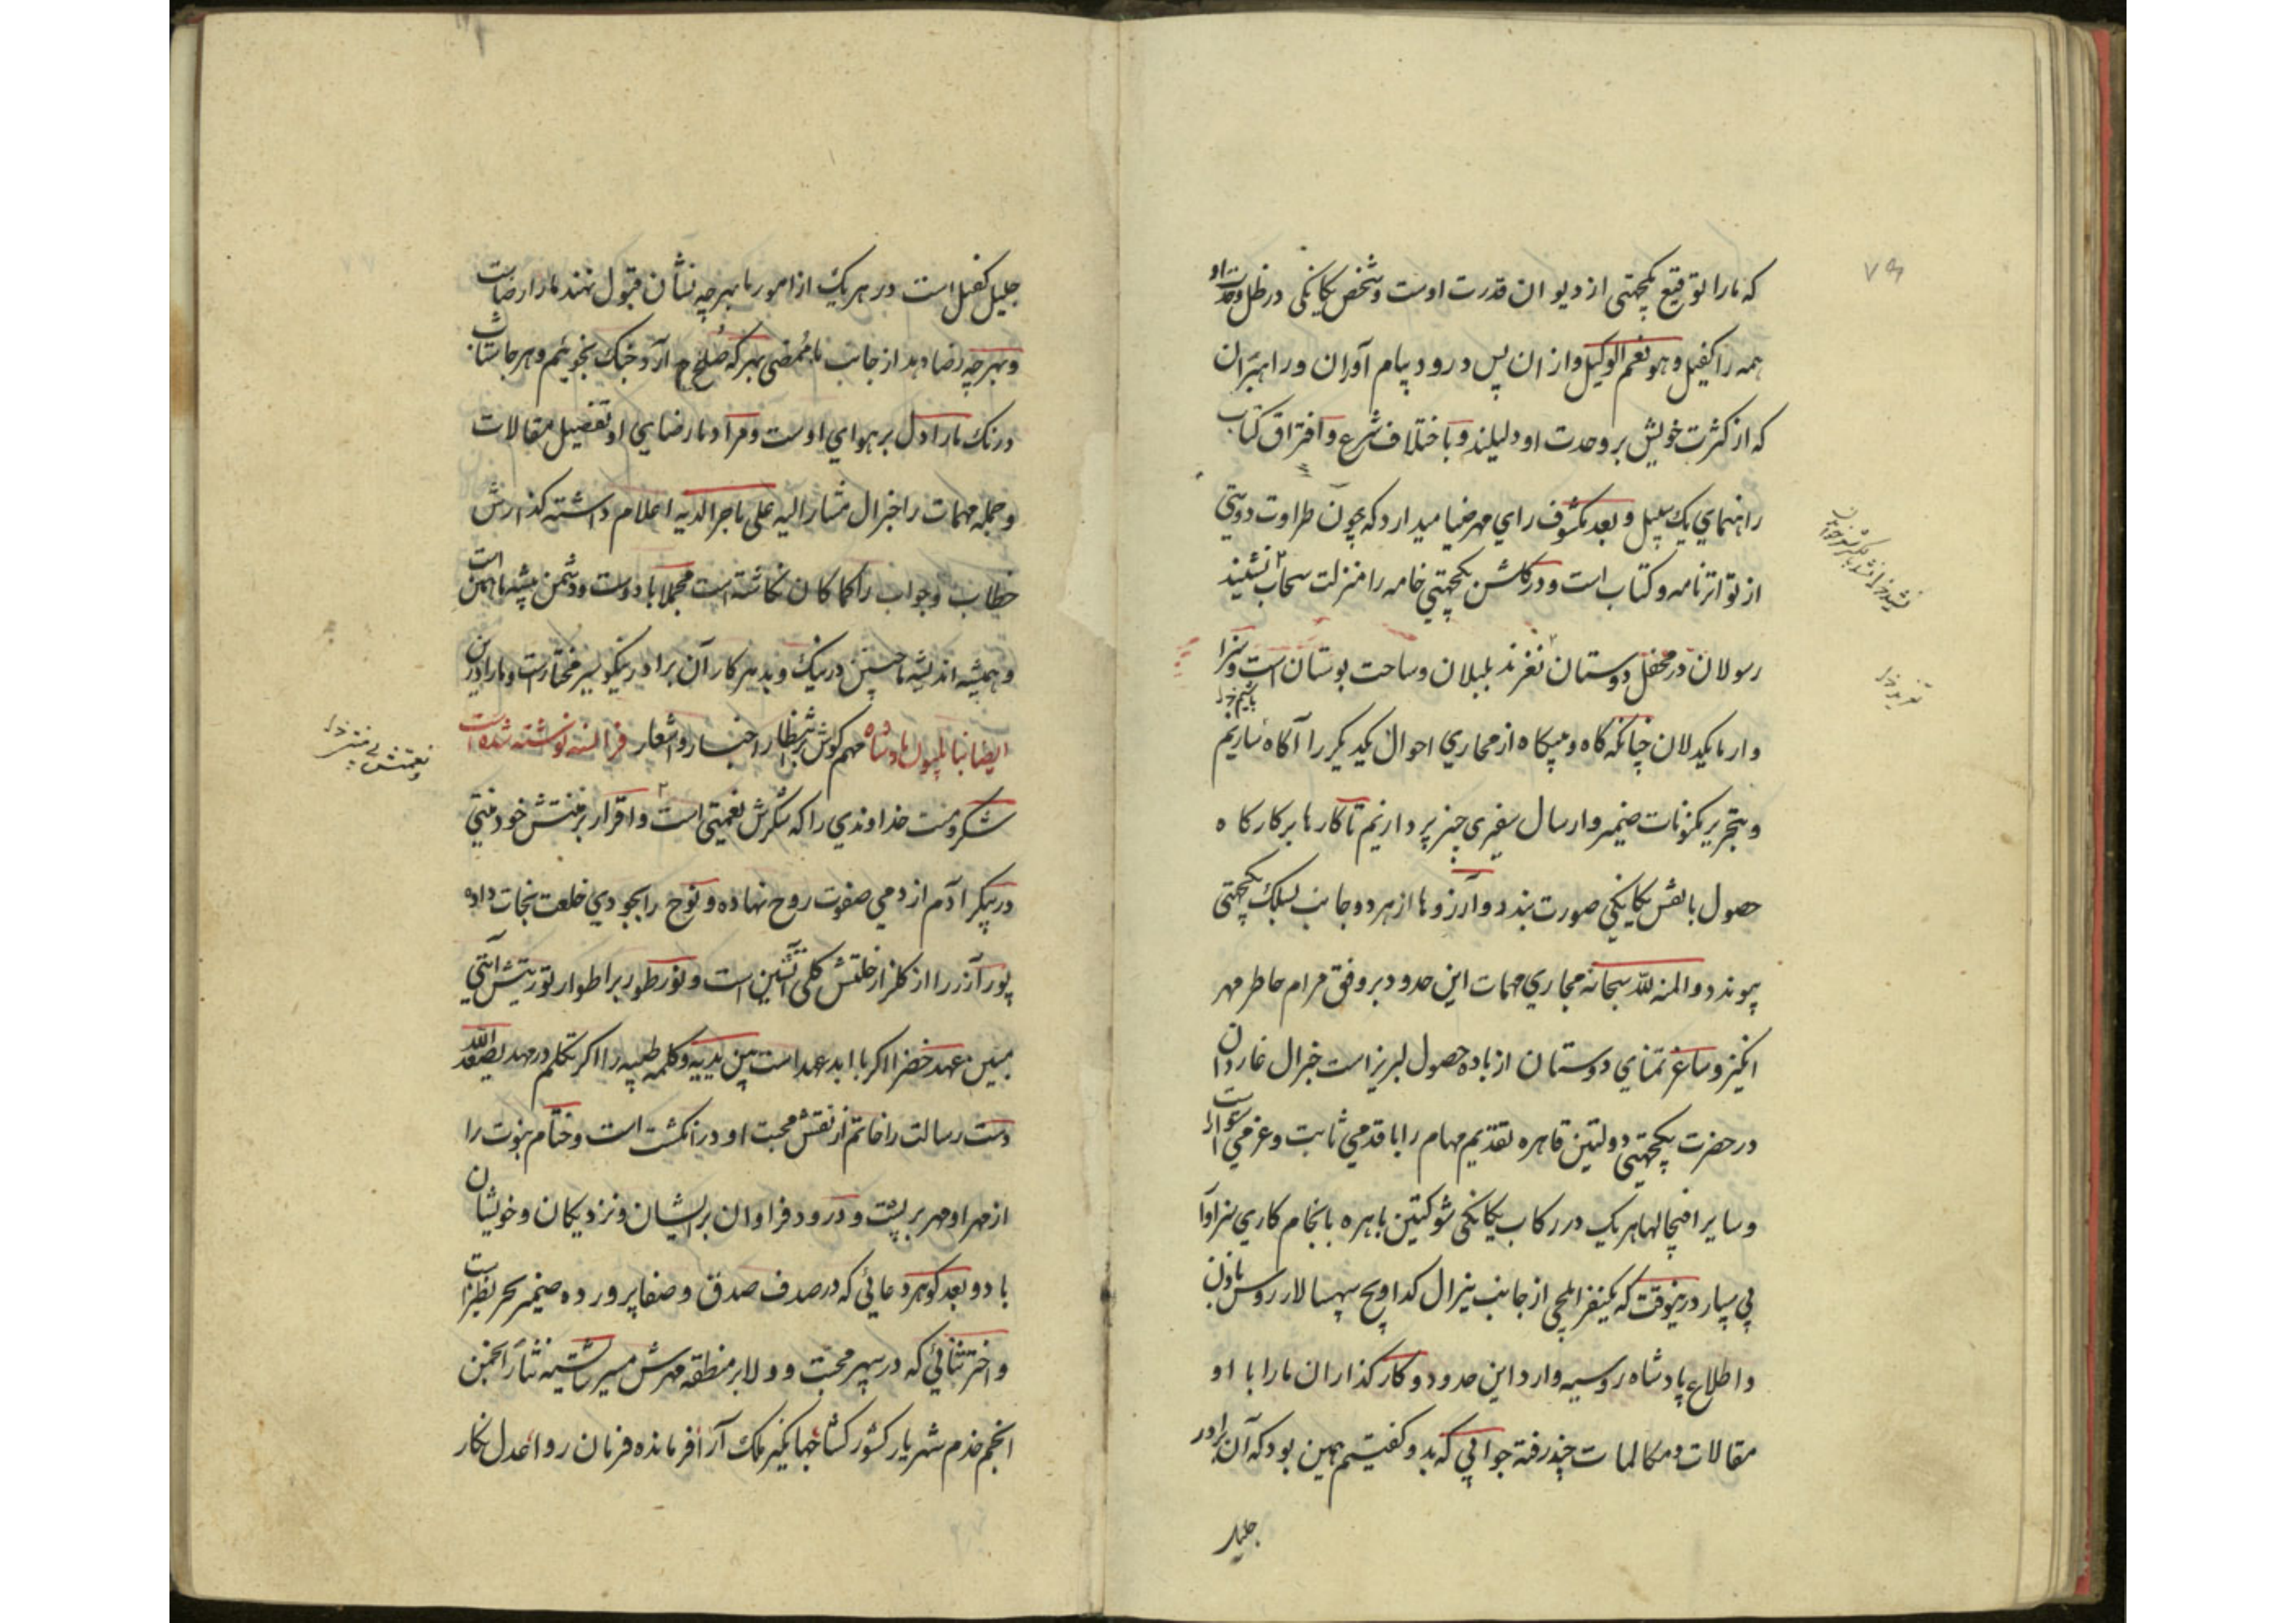 که ما را توقیع یکجهتی از دیوان قدرت اوست و شخص یکانکی در ظل وحدت او
همه را کفیل و هو نعم الوکیل و از ان پس درود پیام آوران و راهبران
که از کثرت خویش بر وحدت او دلیلند و باختلاف شرع و افتراق کتاب
راهنمای یک سبیل و بعد مکشوف رای مهر ضیا میدارد که چون طراوت دوستی
از تواتر نامه و کتاب است و در کلشن یکجهتی خامه را منزلت سحاب نشیند
رسولان در محفل دوستان نغزند بلبلان و ساحت بوستان است و سزا
وار ما یکدلان چنانکه کاه و بیکاه از مجاری احوال یکدیکر را آکاه سازیم
و بتحریر مکنونات ضمیر و ارسال سفیری چند پردازیم تا کارها بر کارکاه
حصول با نقش یکانکی صورت بندد و آرزوها از هر دو جانب بسلک یکجهتی
پیوندد و المنه لله سبحانه مجاری مهمات این حدود بر وفق مرام خاطر مهر
انکیز و ساغر تمنای دوستان از باده حصول لبریز است جنرال غاردان
در حضرت یکجهتی دولتین قاهره تقدیم مهام را با قدمی ثابت و عزمی استوار است
و سایر افیچالها هر یک در رکاب یکانکی شوکتین باهره بانجام کاری سزاوار
پی سپار درینوقت که یکنفر ایلچی از جانب ینرال کداویچ سپهسالار روس باذن
و اطلاع پادشاه روسیه وارد این حدود و کارکذاران ما را با او
مقالات و مکالمات چند رفته جوابی که بدو کفتیم همین بود که آن برادر
جلیل
جلیل کفیل است در هر یک از امور ما بهر چه نشان قبول نهند ما را رضاست
و بهر چه رضا دهد از جانب ما ممضی بهر که صلح آرد جنک نجوئیم و هر جا شتاب
درنک ما را دل بر هوای اوست و مراد ما رضای او تفصیل مقالات
و جمله مهمات را جنرال مشار الیه علی ما جرا لدیه اعلام داشته کذارش
خطاب و جواب را کما کان نکاشته است مجملا با دوست و دشمن پیشه ما همین است
و همیشه اندیشه ما چنین در نیک و بد هر کار آن برادر نیکو سیر مختار است و ما را درین
مهم کوش بر انتظار اخبار و اشعار ایضا بناپلیون پادشاه فرانسه نوشته شده است
شکر و منت خداوندی را که شکرش نعمتی است و اقرار بر منتش خود منتی
در پیکر آدم از دمی صفوت روح نهاده و نوح را بجودی خلعت نجات داده
پور آزر را از کلزار خلتش کلی آتشین است و نور طور بر اطوار توریتش آیتی
مبین عهد خضر ا اکر با ابد عهد است بین یدیه و کلمه طیبه را اکر تکلم در مهد یصعد الیه
دست رسالت را خاتم از نقش محبت او در انکشت است و ختام نبوت را
از مهر او مهر بر پشت و درود فراوان بر ایشان و نزدیکان و خویشان
باد و بعد کوهر دعائی که در صدف صدق و صفا پرورده ضمیر بحر نظیر است
و اختر ثنائی که در سپهر محبت و ولا بر منطقه مهرش مسیر شایسته نثار انجمن
انجم خدم شهریار کشور کشا جهانکیر ملک آرا فرمانده فرمان روا عدل نکار